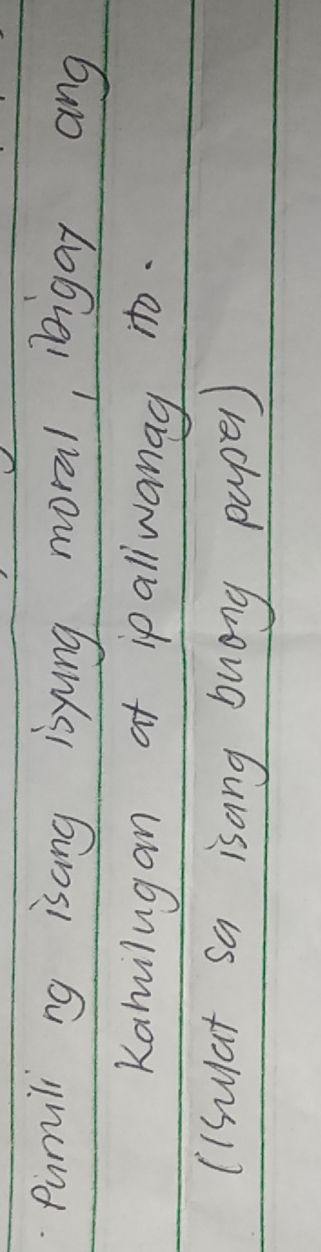 . Pumili ng isang isyung moral, ibigay ang
Kahulugan at ipaliwanag ito.
(Isulat sa isang buong papel)